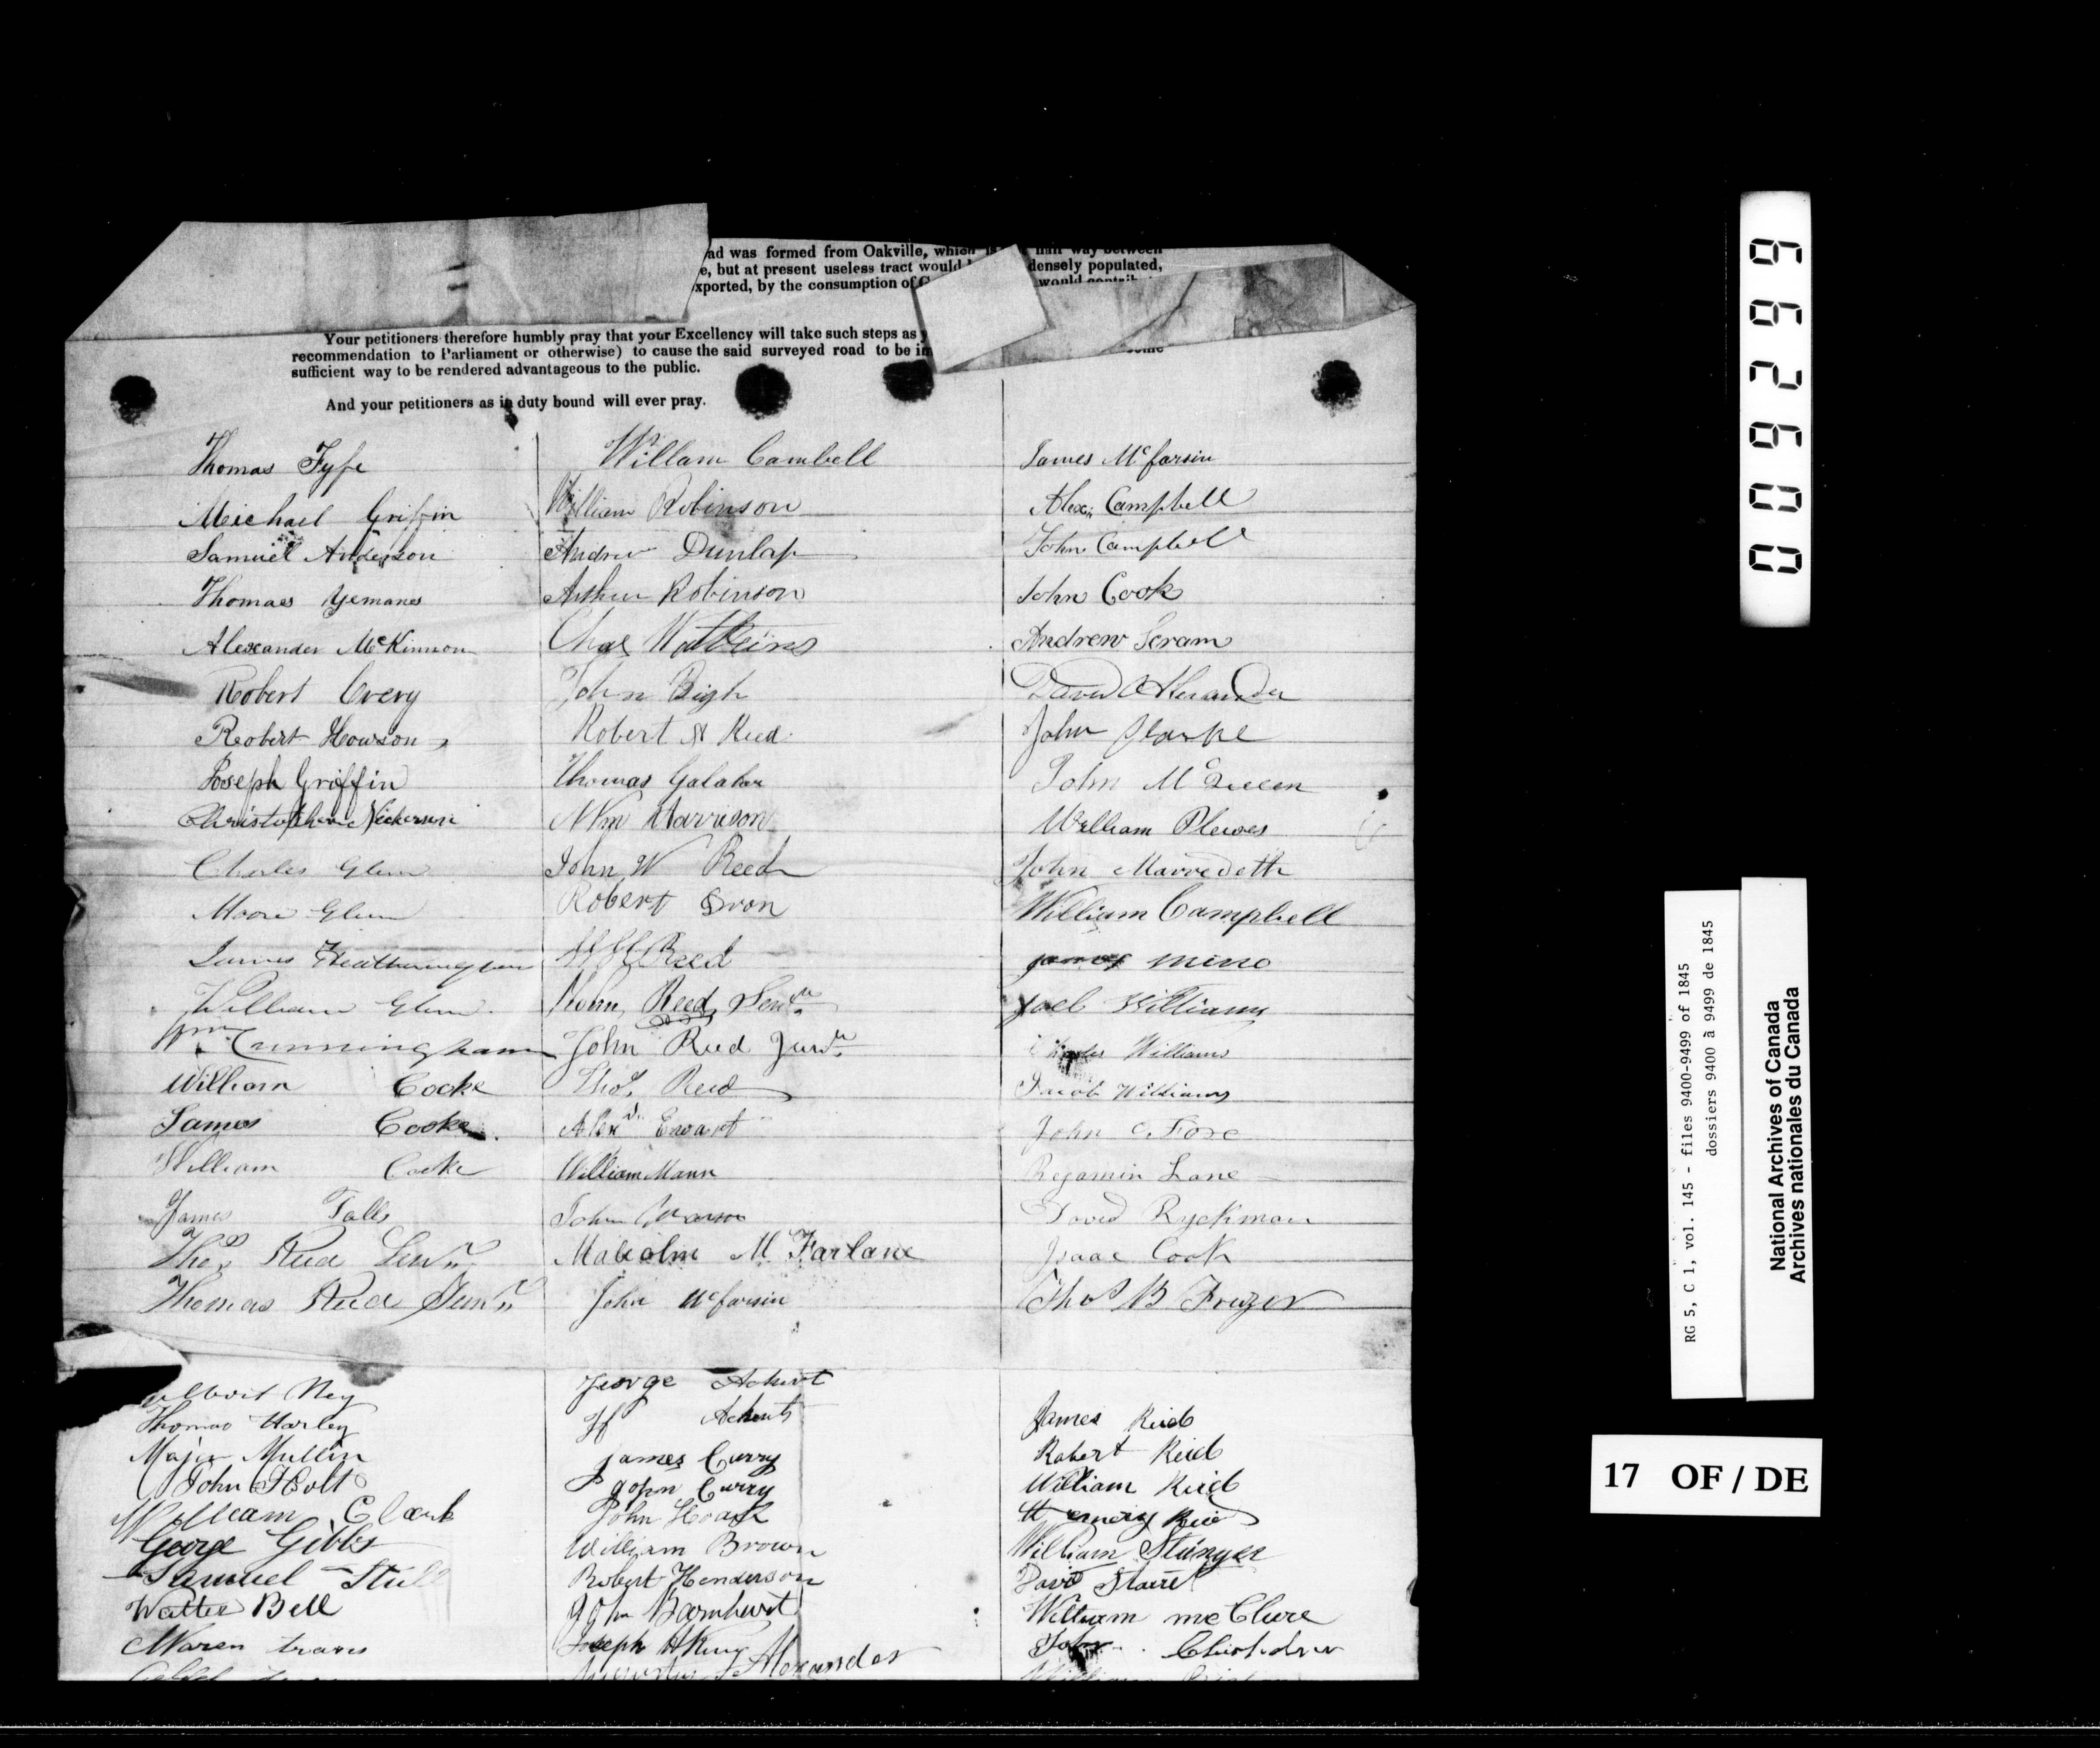 ad was formed from Oakville, which is half way between
e, but at present useless tract would densely populated,
xported, by the consumption of would
Your petitioners therefore humbly pray that your Excellency will take such steps as
recommendation to Parliament or otherwise) to cause the said surveyed road to be
sufficient way to be rendered advantageous to the public.
And your petitioners as in duty bound will ever pray.
Thomas Fyfe
Meichael Griffin
Samuel Anderson
Thomaes Yemans
Alexander McKinnon
Robert Every
Robert Howson
Joseph Griffin
Christopher Nickerson
Charles Glenn
Moore Glenn
James Heatherington
William Glenn
Wm Cunningham
William Cocke
James Cooke
William Cocke
James Falls
Thos Reid Senr
Thomas Reid Junr
Ney
Thomas Harley
Major Mullin
John Holt
William Clark
George Gibbs
Samuel
Walter Bell
Waren travis
Willam Cambell
William Robinson
Andrew Dunlap
Arthur Robinson
Chas Watkins
John Bigh
Robert N Reed
Thomas Galahar
Wm Harrison
John W Reed
Robert
Reed
John Reed Senr
John Reed Junr
Thos Reed
Alexr Ewart
William Mann
John
Malcolm McFarlane
John McFarsin
George
James Curry
John Curry
John
William Brown
Robert Henderson
John Barnhurst
Joseph H King
Alexander
James McFarsin
Alex Campbell
John Campbell
John Cook
Andrew Scram
David Alexander
John Clarke
John McQueen
William Plewes
John Marredeth
William Campbell
james mino
Joel Williams
Charles Williams
Jacob Williams
John C. Fore
Bejamin Lane
David Ryckman
Isaac Cook
Thos B Frazer
James Reid
Robert Reid
William Reid
Reid
William Stinger
David
William mcClure
John
William
009299
RG 5, C 1, vol. 145 - files 9400-9499 of 1845
dossiers 9400 à 9499 de 1845
National Archives of Canada
Archives nationales du Canada
17 OF / DE